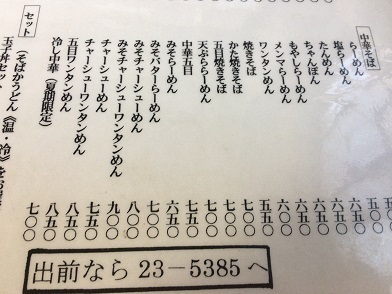 中華そば
らーめん
塩らーめん
たんめん
ちゃんぽん
もやしらーめん 六〇〇
メンマらーめん 六〇〇
ワンタンめん 五五〇
焼きそば 五五〇
かた焼きそば 六五〇
五目焼きそば 七〇〇
天ぷららーめん 七〇〇
中華五目 六五〇
みそらーめん 六五〇
みそバターらーめん 七〇〇
みそチャーシューめん 八〇〇
みそチャーシューワンタンめん 九〇〇
チャーシューめん 七五〇
チャーシューワンタンめん 八五〇
五目ワンタンめん 八五〇
冷し中華（夏期限定） 七〇〇
セット
（そばかうどん《温・冷》をお
玉子丼セット
出前なら 23－5385 へ